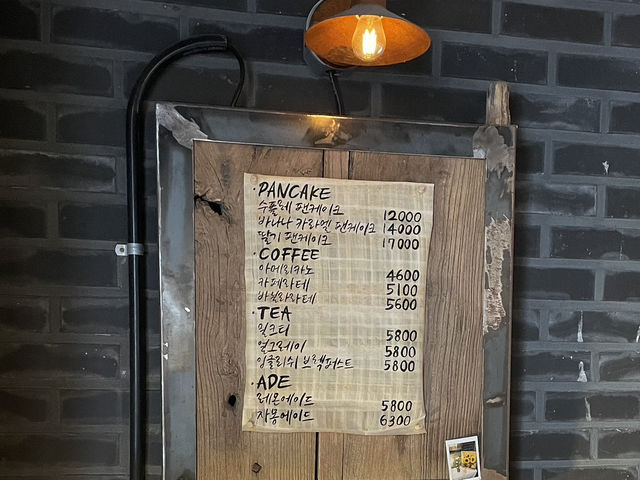 ·PANCAKE
수플레 팬케이크 12000
바나나 카라멜 팬케이크 14000
딸기 팬케이크 17000
·COFFEE
아메리카노 4600
카페라떼 5100
바닐라라떼 5600
·TEA
밀크티 5800
얼그레이 5800
잉글리쉬 브렉퍼스트 5800
·ADE
레몬에이드 5800
자몽에이드 6300